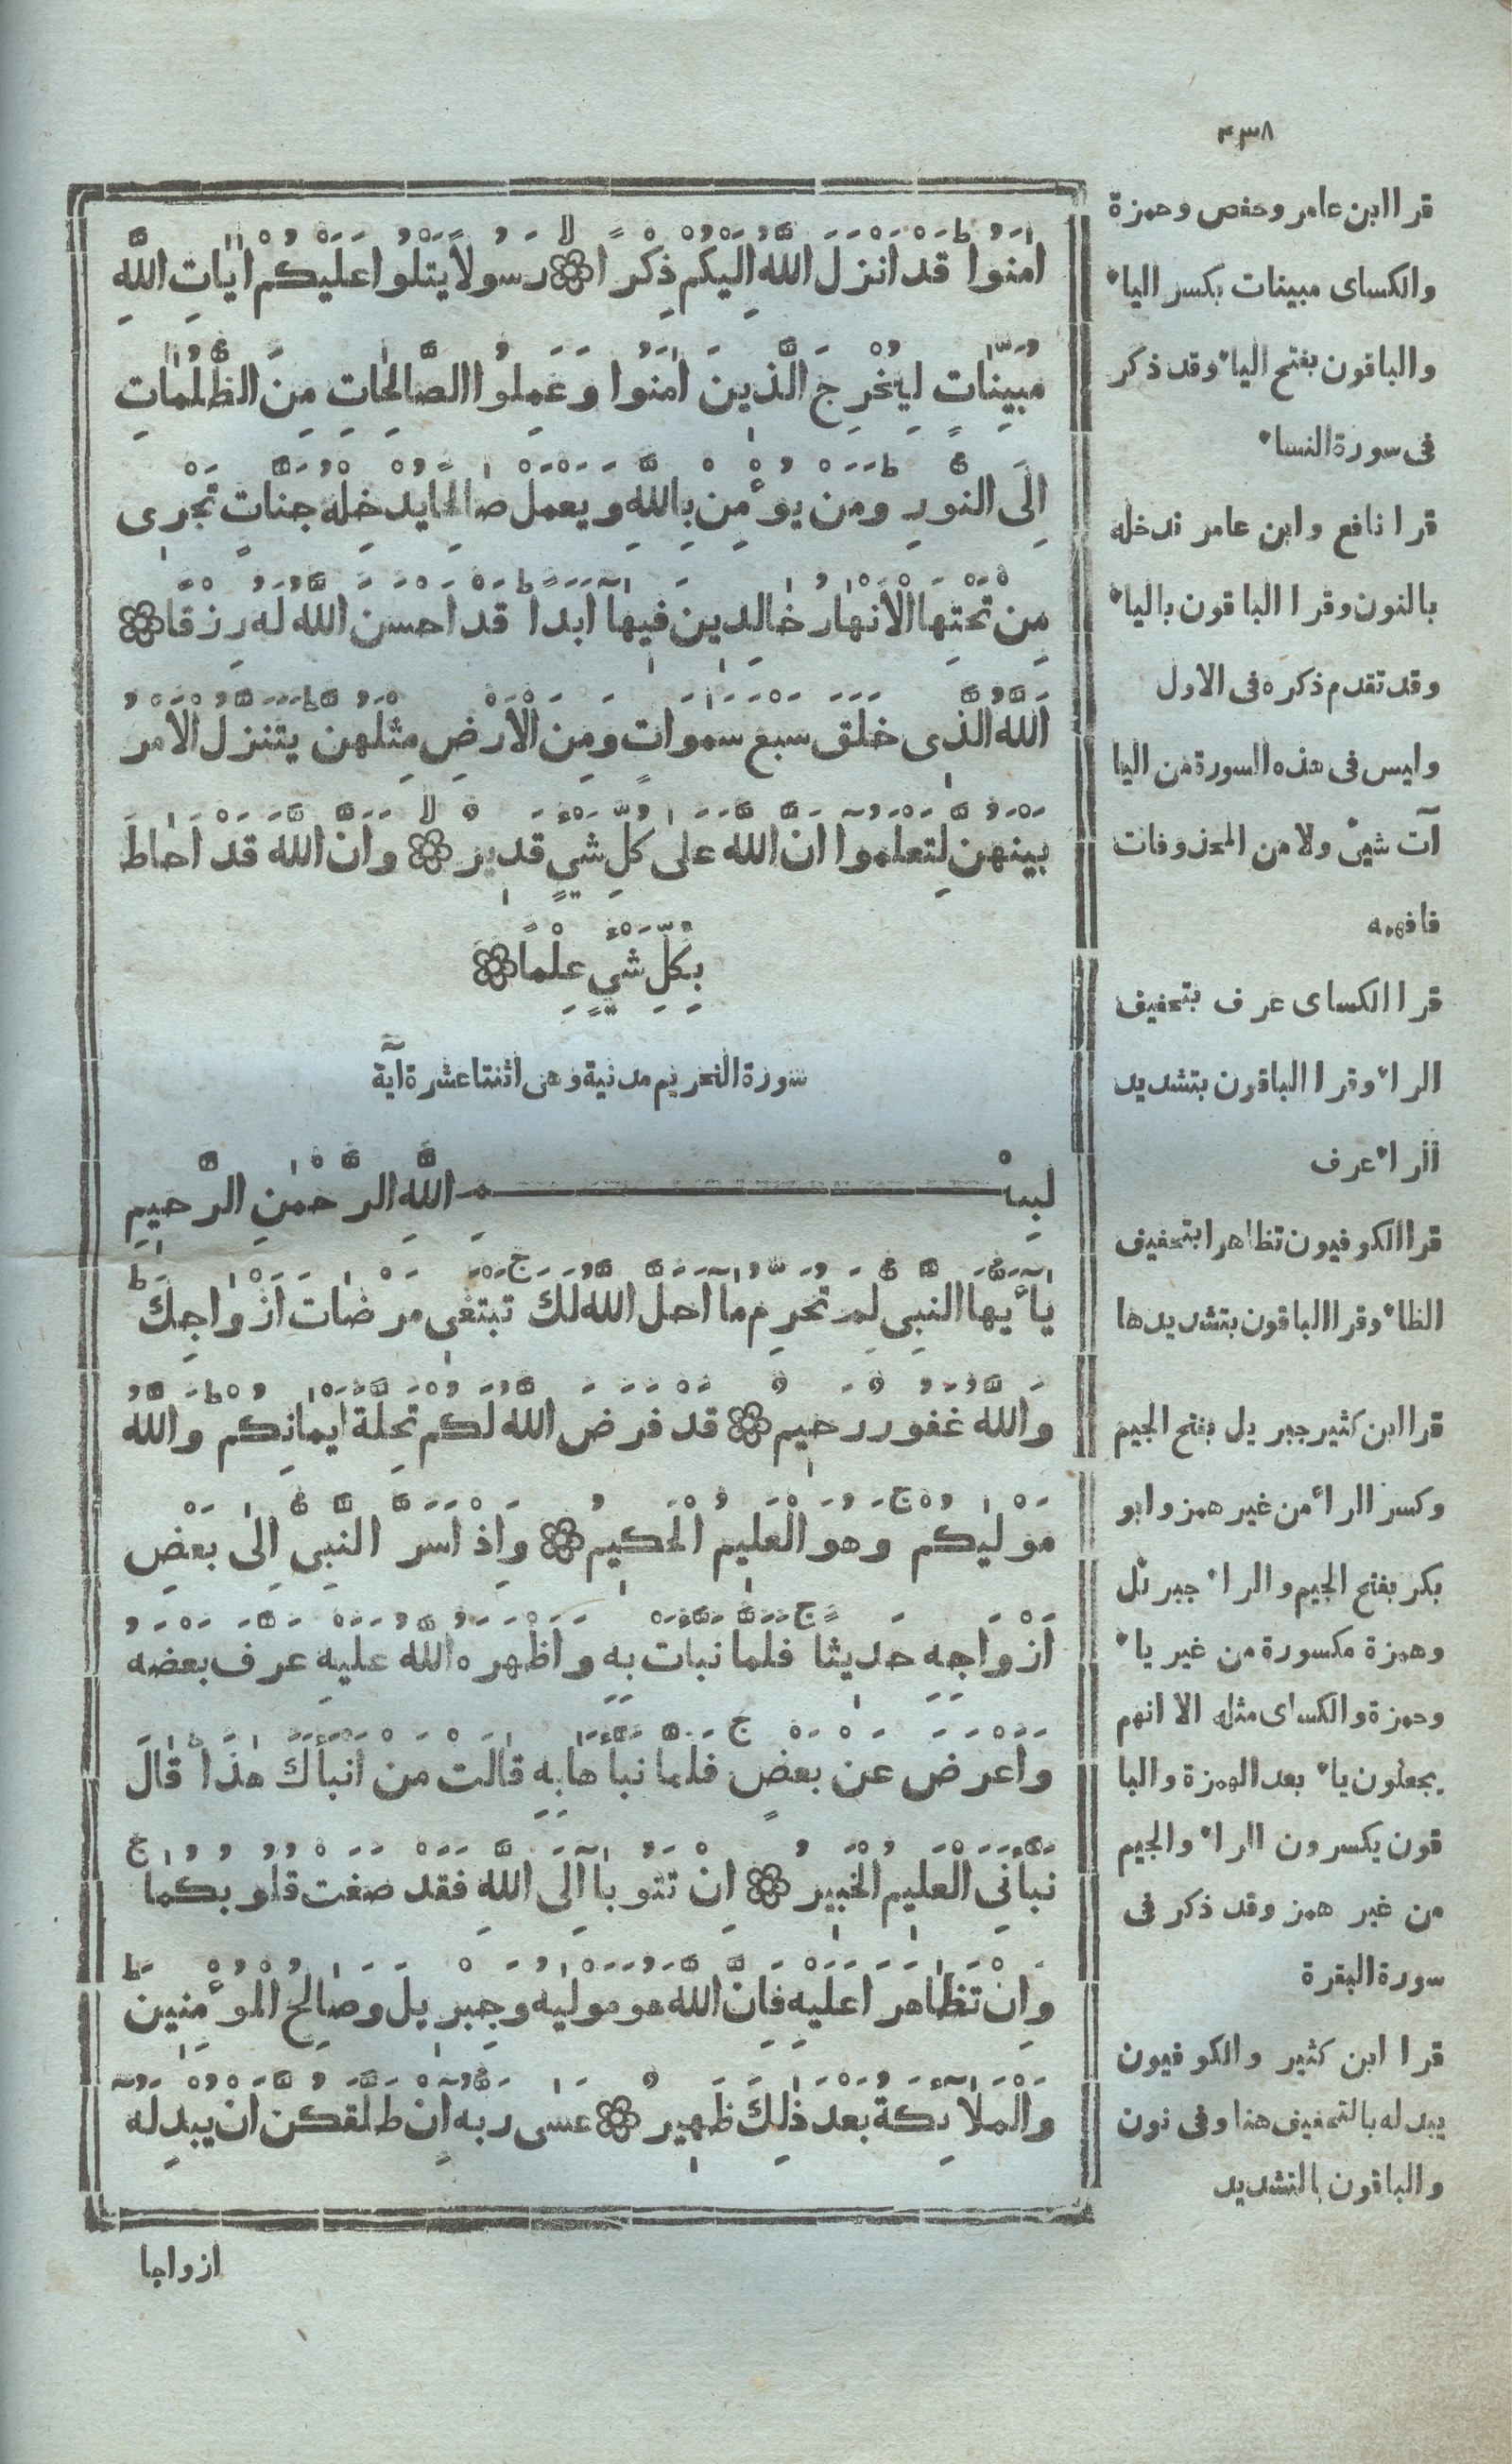 ٤٣٨
اٰمَنُوا قَدْ اَنْزَلَ اللّٰهُ اِلَيْكُمْ ذِكْرًا ۞ رَسُولًا يَتْلُوا عَلَيْكُمْ اٰيَاتِ اللّٰهِ
مُبَيِّنَاتٍ لِيُخْرِجَ الَّذِينَ اٰمَنُوا وَعَمِلُوا الصَّالِحَاتِ مِنَ الظُّلُمَاتِ
اِلَى النُّورِ وَمَنْ يُؤْمِنْ بِاللّٰهِ وَيَعْمَلْ صَالِحًا يُدْخِلْهُ جَنَّاتٍ تَجْرِى
مِنْ تَحْتِهَا الْاَنْهَارُ خَالِدِينَ فِيهَا اَبَدًا قَدْ اَحْسَنَ اللّٰهُ لَهُ رِزْقًا ۞
اَللّٰهُ الَّذِى خَلَقَ سَبْعَ سَمٰوَاتٍ وَمِنَ الْاَرْضِ مِثْلَهُنَّ يَتَنَزَّلُ الْاَمْرُ
بَيْنَهُنَّ لِتَعْلَمُوا اَنَّ اللّٰهَ عَلٰى كُلِّ شَيْءٍ قَدِيرٌ ۞ وَاَنَّ اللّٰهَ قَدْ اَحَاطَ
بِكُلِّ شَيْءٍ عِلْمًا ۞
سورة التحريم مدنية وهى اثنتا عشرة آية
بِسْمِ اللّٰهِ الرَّحْمٰنِ الرَّحِيمِ
يَا أَيُّهَا النَّبِىُّ لِمَ تُحَرِّمُ مَا اَحَلَّ اللّٰهُ لَكَ تَبْتَغِى مَرْضَاتَ اَزْوَاجِكَ
وَاللّٰهُ غَفُورٌ رَحِيمٌ ۞ قَدْ فَرَضَ اللّٰهُ لَكُمْ تَحِلَّةَ اَيْمَانِكُمْ وَاللّٰهُ
مَوْلٰيكُمْ وَهُوَ الْعَلِيمُ الْحَكِيمُ ۞ وَاِذْ اَسَرَّ النَّبِىُّ اِلٰى بَعْضِ
اَزْوَاجِهِ حَدِيثًا فَلَمَّا نَبَّاَتْ بِهِ وَاَظْهَرَهُ اللّٰهُ عَلَيْهِ عَرَّفَ بَعْضَهُ
وَاَعْرَضَ عَنْ بَعْضٍ فَلَمَّا نَبَّاَهَا بِهِ قَالَتْ مَنْ اَنْبَاَكَ هٰذَا قَالَ
نَبَّاَنِىَ الْعَلِيمُ الْخَبِيرُ ۞ اِنْ تَتُوبَا اِلَى اللّٰهِ فَقَدْ صَغَتْ قُلُوبُكُمَا
وَاِنْ تَظَاهَرَا عَلَيْهِ فَاِنَّ اللّٰهَ هُوَ مَوْلٰيهُ وَجِبْرِيلُ وَصَالِحُ الْمُؤْمِنِينَ
وَالْمَلَائِكَةُ بَعْدَ ذٰلِكَ ظَهِيرٌ ۞ عَسٰى رَبُّهُ اِنْ طَلَّقَكُنَّ اَنْ يُبْدِلَهُ
ازواجا
قرا ابن عامر وحفص وحمزة
والكساى مبينات بكسر الياء
والباقون بفتح الياء وقد ذكر
فى سورة النساء
قرا نافع وابن عامر ندخله
بالنون وقرا الباقون بالياء
وقد تقدم ذكره فى الاول
وليس فى هذه السورة من اليا
آت شيئ ولا من المحذوفات
فافهمه
قرا الكساى عرف بتخفيف
الراء وقرا الباقون بتشديد
الراء عرف
قرا الكوفيون تظاهرا بتخفيف
الظاء وقرا الباقون بتشديدها
قرا ابن كثير جبريل بفتح الجيم
وكسر الراء من غير همز وابو
بكر بفتح الجيم والراء جبرئل
وهمزة مكسورة من غير ياء
وحمزة والكساى مثله الا انهم
يجعلون ياء بعد الهمزة والبا
قون يكسرون الراء والجيم
من غير همز وقد ذكر فى
سورة البقرة
قرا ابن كثير والكوفيون
يبدله بالتخفيف هنا وفى نون
والباقون بالتشديد